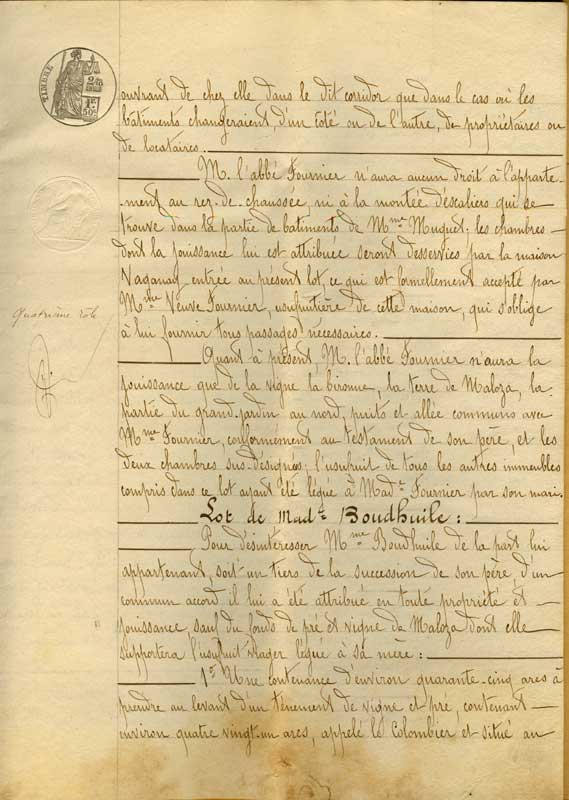 TIMBRE
50c
ouvrant de chez elle dans le dit corridor que dans le cas où les
bâtiments changeraient, d'un côté ou de l'autre, de propriétaires ou
de locataires.
M. l'abbé Fournier n'aura aucun droit à l'apparte-
-ment au rez-de-chaussée, ni à la montée d'escaliers qui se
trouve dans la partie de batiments de Mme Muguet; les chambres
dont la jouissance lui est attribuée seront desservies par la maison
Vaganay entrée au présent lot, ce qui est formellement accepté par
Mme Veuve Fournier, usufruitière de cette maison, qui s'oblige
à lui fournir tous passages nécessaires.
Quatrième rôle
Quant à présent M. l'abbé Fournier n'aura la
jouissance que de la vigne la bironne, la terre de Maloza, la
partie du grand jardin au nord, puits et allée communs avec
Mme Fournier, conformément au testament de son père, et les
deux chambres sus-désignés; l'usufruit de tous les autres immeubles
compris dans ce lot ayant été légué à Made Fournier par son mari.
Lot de Made Boudhuile:
Pour désintéresser Mme Boudhuile de la part lui
appartenant, soit un tiers de la succession de son père, d'un
commun accord il lui a été attribué en toute propriété et
jouissance sauf du fonds de pré et vigne de Maloza dont elle
supportera l'usufruit viager légué à sa mère:
1° Une contenance d'environ quarante-cinq ares à
prendre au levant d'un tènement de vigne et pré, contenant
environ quatre vingt-un ares, appelé le Colombier et situé au